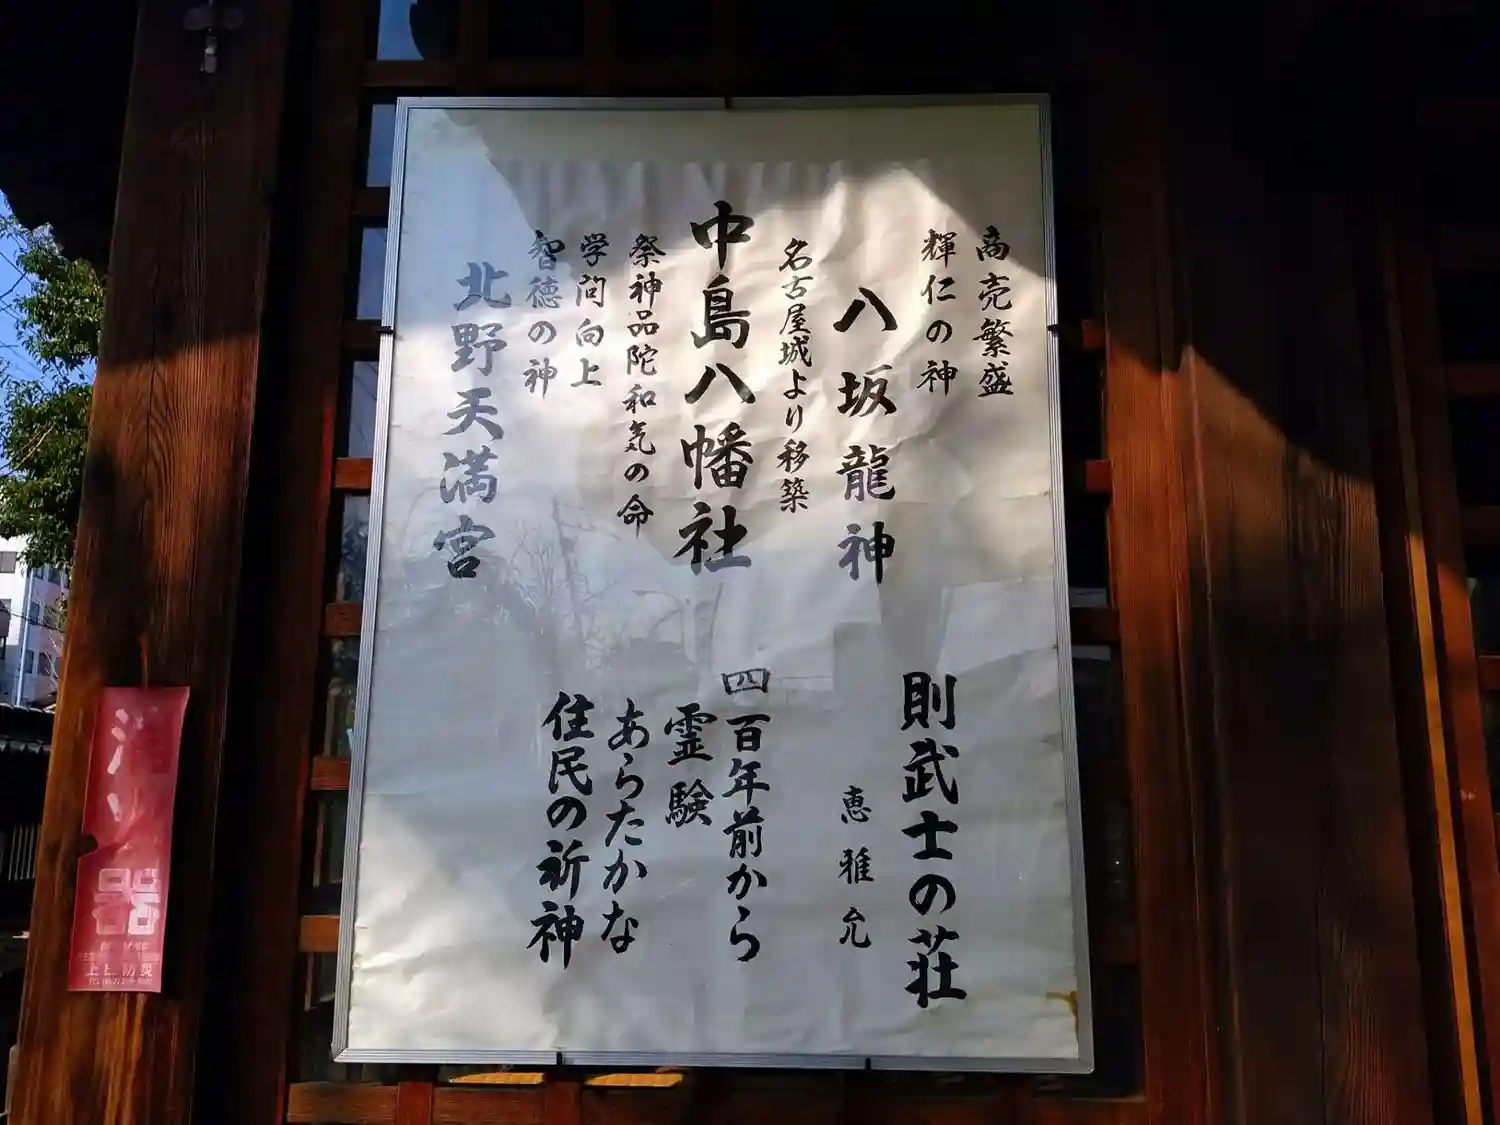 商売繁盛
輝仁の神
八坂龍神
名古屋城より移築
中島八幡社
祭神品陀和気の命
学問向上
智徳の神
北野天満宮
則武士の荘
恵雅允
四百年前から
霊験
あらたかな
住民の祈神
消火器